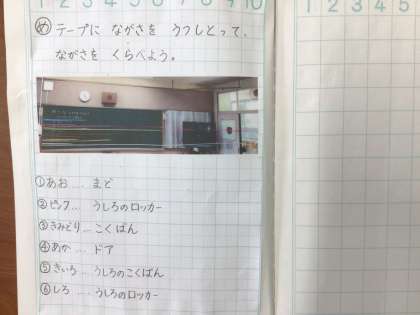 1 2 3 4 5 6 7 8 9 10
め テープに ながさを うつしとって、
ながさを くらべよう。
①あお…まど
②ピンク…うしろのロッカー
③きみどり…こくばん
④あか…ドア
⑤きいろ…うしろのこくばん
⑥しろ…うしろのロッカー
1 2 3 4 5